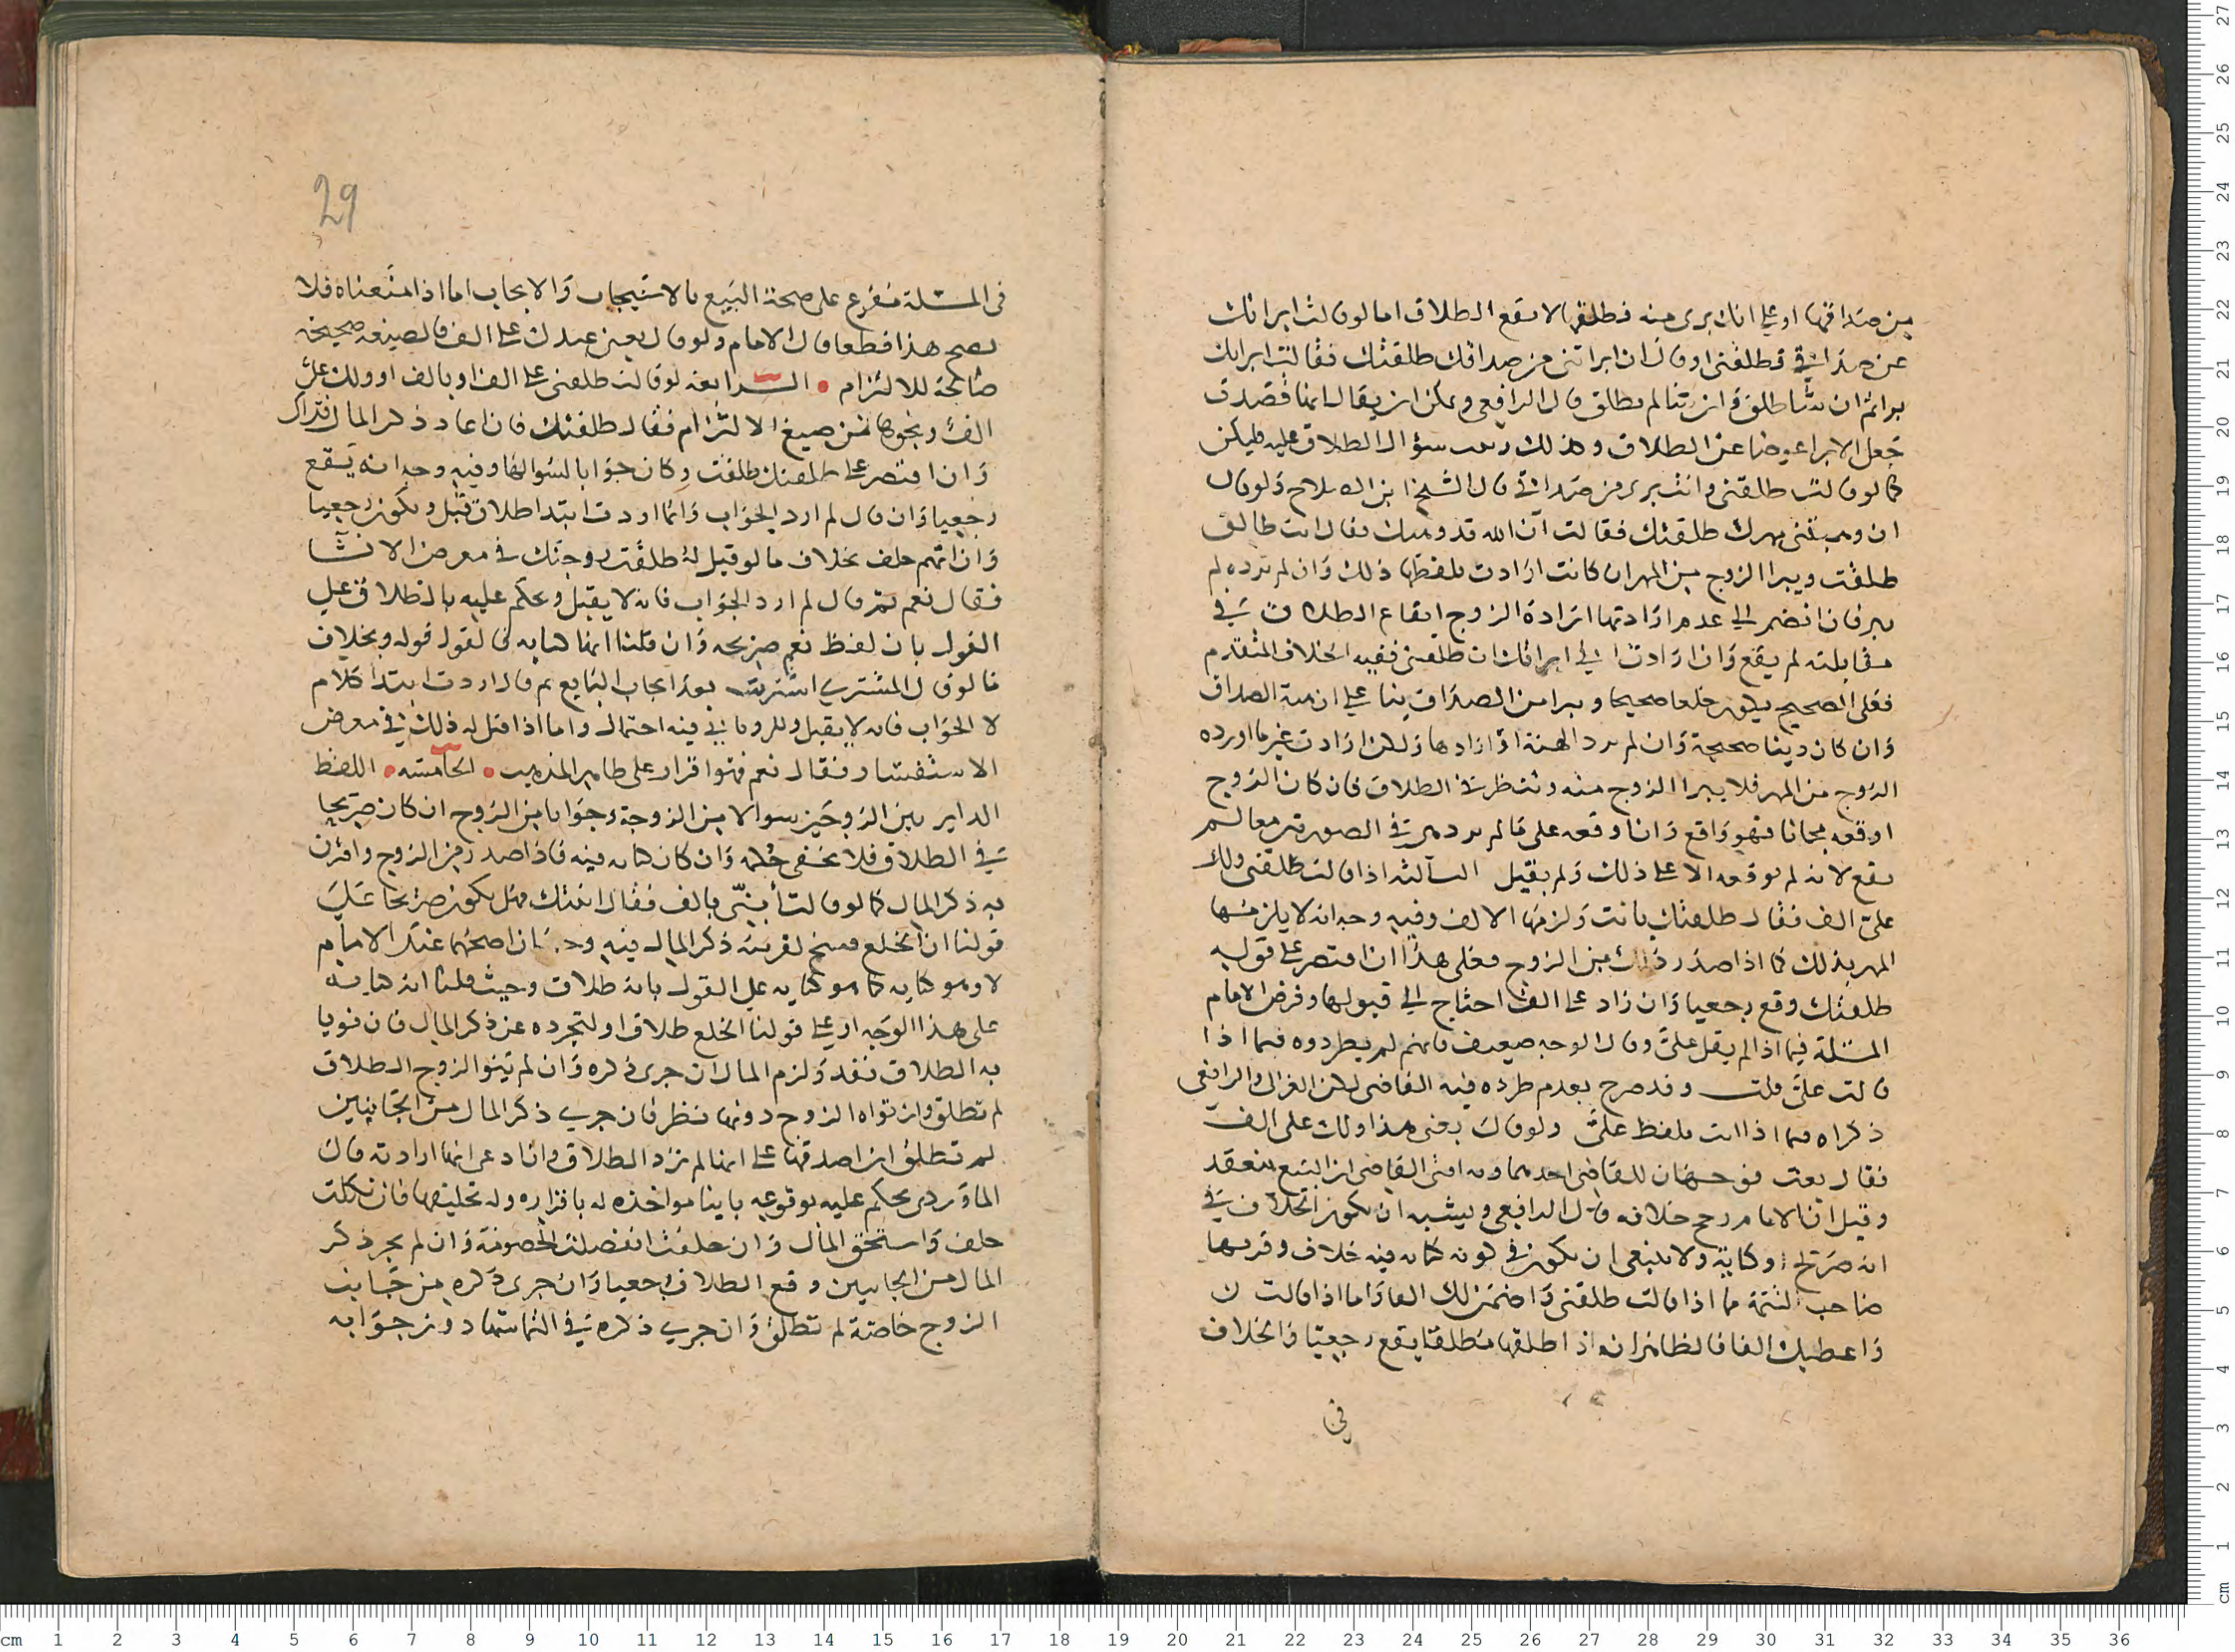 من صداقها او على انك برى منه فطلقها لا يقع الطلاق اما لو قالت ابراتك
عن صداقي فطلقني او قال ان ابراتني من صداقك طلقتك فقالت ابراتك
برا ثم ان شا طلق وان شا لم يطلق قال الرافعي ويمكن ان يقال انها قصدت
جعل الابرا عوضا عن الطلاق وكذلك رتبت سؤال الطلاق عليه فليكن
كما لو قالت طلقني وانت برى من صداقي قال الشيخ ابن الصلاح ولو قال
ان وهبتني مهرك طلقتك فقالت ان الله قد وهبك فقال انت طالق
طلقت ويبرا الزوج من المهر ان كانت ارادت بلفظها ذلك وان لم ترده لم
يبر فان انضم الى عدم ارادتها ارادة الزوج ايقاع الطلاق في
مقابلته لم يقع وان ارادت اني ابراتك ان طلقتني ففيه الخلاف المتقدم
فعلى الصحيح يكون خلعا صحيحا ويبرا من الصداق بنا على ان هبة الصداق
وان كان دينا صحيحة وان لم ترد الهبة او ارادها ولكن ارادت غير ما اورده
الزوج من المهر فلا يبرا الزوج منه وننظر في الطلاق فان كان الزوج
اوقعه مجانا فهو واقع وان اوقعه على ما لم يرد من في الصورتين معا لم
يقع لانه لم يوقعه الا على ذلك ولم يقبل الثالثة اذا قالت طلقني ولك
علي الف فقال طلقتك بانت ولزمها الالف وفيه وجه انه لا يلزمها
المهر بذلك كما اذا صدر ذلك من الزوج فعلى هذا ان اقتصر على قوله
طلقتك وقع رجعيا وان زاد على الف احتاج الى قبولها وفرض الامام
المسئلة فيما اذا لم يقل علي وقال الوجه ضعيف فانهم لم يطردوه فيما اذا
قالت علي قلت وقد صرح بعدم طرده فيه القاضي لكن الغزالي والرافعي
ذكراه فيما اذا اتت بلفظ علي ولو قال بعني هذا ولك علي الف
فقال بعت فوجهان للقاضي احدهما وبه افتى القاضي ان البيع ينعقد
وقيل ان الامام رجح خلافه قال الرافعي ويشبه ان يكون الخلاف في
انه صريح او كناية ولا ينبغي ان يكون في كونه كناية فيه خلاف وقربها
صاحب التتمة مما اذا قالت طلقني واضمن لك الفا واما اذا قالت ان
واعطيك الفا فالظاهر انه اذا طلقها مطلقا يقع رجعيا والخلاف
في
29
في المسئلة مفرع على صحة البيع بالاستيجاب والايجاب اما اذا منعناه فلا
يصح هذا قطعا قال الامام ولو قال بعني عبدك على الف فالصيغة صحيحة
صالحة للالتزام الرابعة لو قالت طلقني على الف او بالف او ولك علي
الف ونحوها من صيغ الالتزام فقال طلقتك فان اعاد ذكر المال فذاك
وان اقتصر على طلقتك طلقت وكان جوابا لسؤالها وفيه وجه انه يقع
رجعيا وان قال لم ارد الجواب وانما اردت ابتدا طلاق قبل ويكون رجعيا
وان اتهم حلف بخلاف ما لو قيل له طلقت زوجتك في معرض الانشا
فقال نعم ثم قال لم ارد الجواب فانه لا يقبل ويحكم عليه بالطلاق على
القول بان لفظ نعم صريحه وان قلنا انها كناية في القول قوله وبخلاف
ما لو قال المشتري اشتريت بعد ايجاب البايع ثم قال اردت ابتدا كلام
لا الجواب فانه لا يقبل وللروياني فيه احتمال واما اذا قيل له ذلك في معرض
الاستفسار فقال نعم فهو اقرار على ظاهر المذهب الخامسة اللفظ
الداير بين الزوجين سوالا من الزوجة وجوابا من الزوج ان كان صريحا
في الطلاق فلا يخفى حكمه وان كان كناية فيه فاذا صدر من الزوج واقترن
به ذكر المال كما لو قالت أبنّي بالف فقال ابنتك فهل يكون صريحا على
قولنا ان الخلع فسخ لقرينة ذكر المال فيه وجهان اصحهما عند الامام
لا وهو كناية كما هو كناية على القول بانه طلاق وحيث قلنا انه كناية
على هذا الوجه او على قولنا الخلع طلاق او لتجرده عن ذكر المال فان نويا
به الطلاق نفذ ولزم المال ان جرى ذكره وان لم ينو الزوج الطلاق
لم تطلق وان نواه الزوج دونها نظر فان جرى ذكر المال من الجانبين
لم تطلق ان اصدقها على انها لم ترد الطلاق وان ادعى انها ارادته قال
الماوردي يحكم عليه بوقوعه باينا مواخذة له باقراره وله تحليفها فان نكلت
حلف واستحق المال وان حلفت انفصلت الخصومة وان لم يجر ذكر
المال من الجانبين وقع الطلاق رجعيا وان جرى ذكره من جانب
الزوج خاصة لم تطلق وان جرى ذكره في التماسها دون جوابه